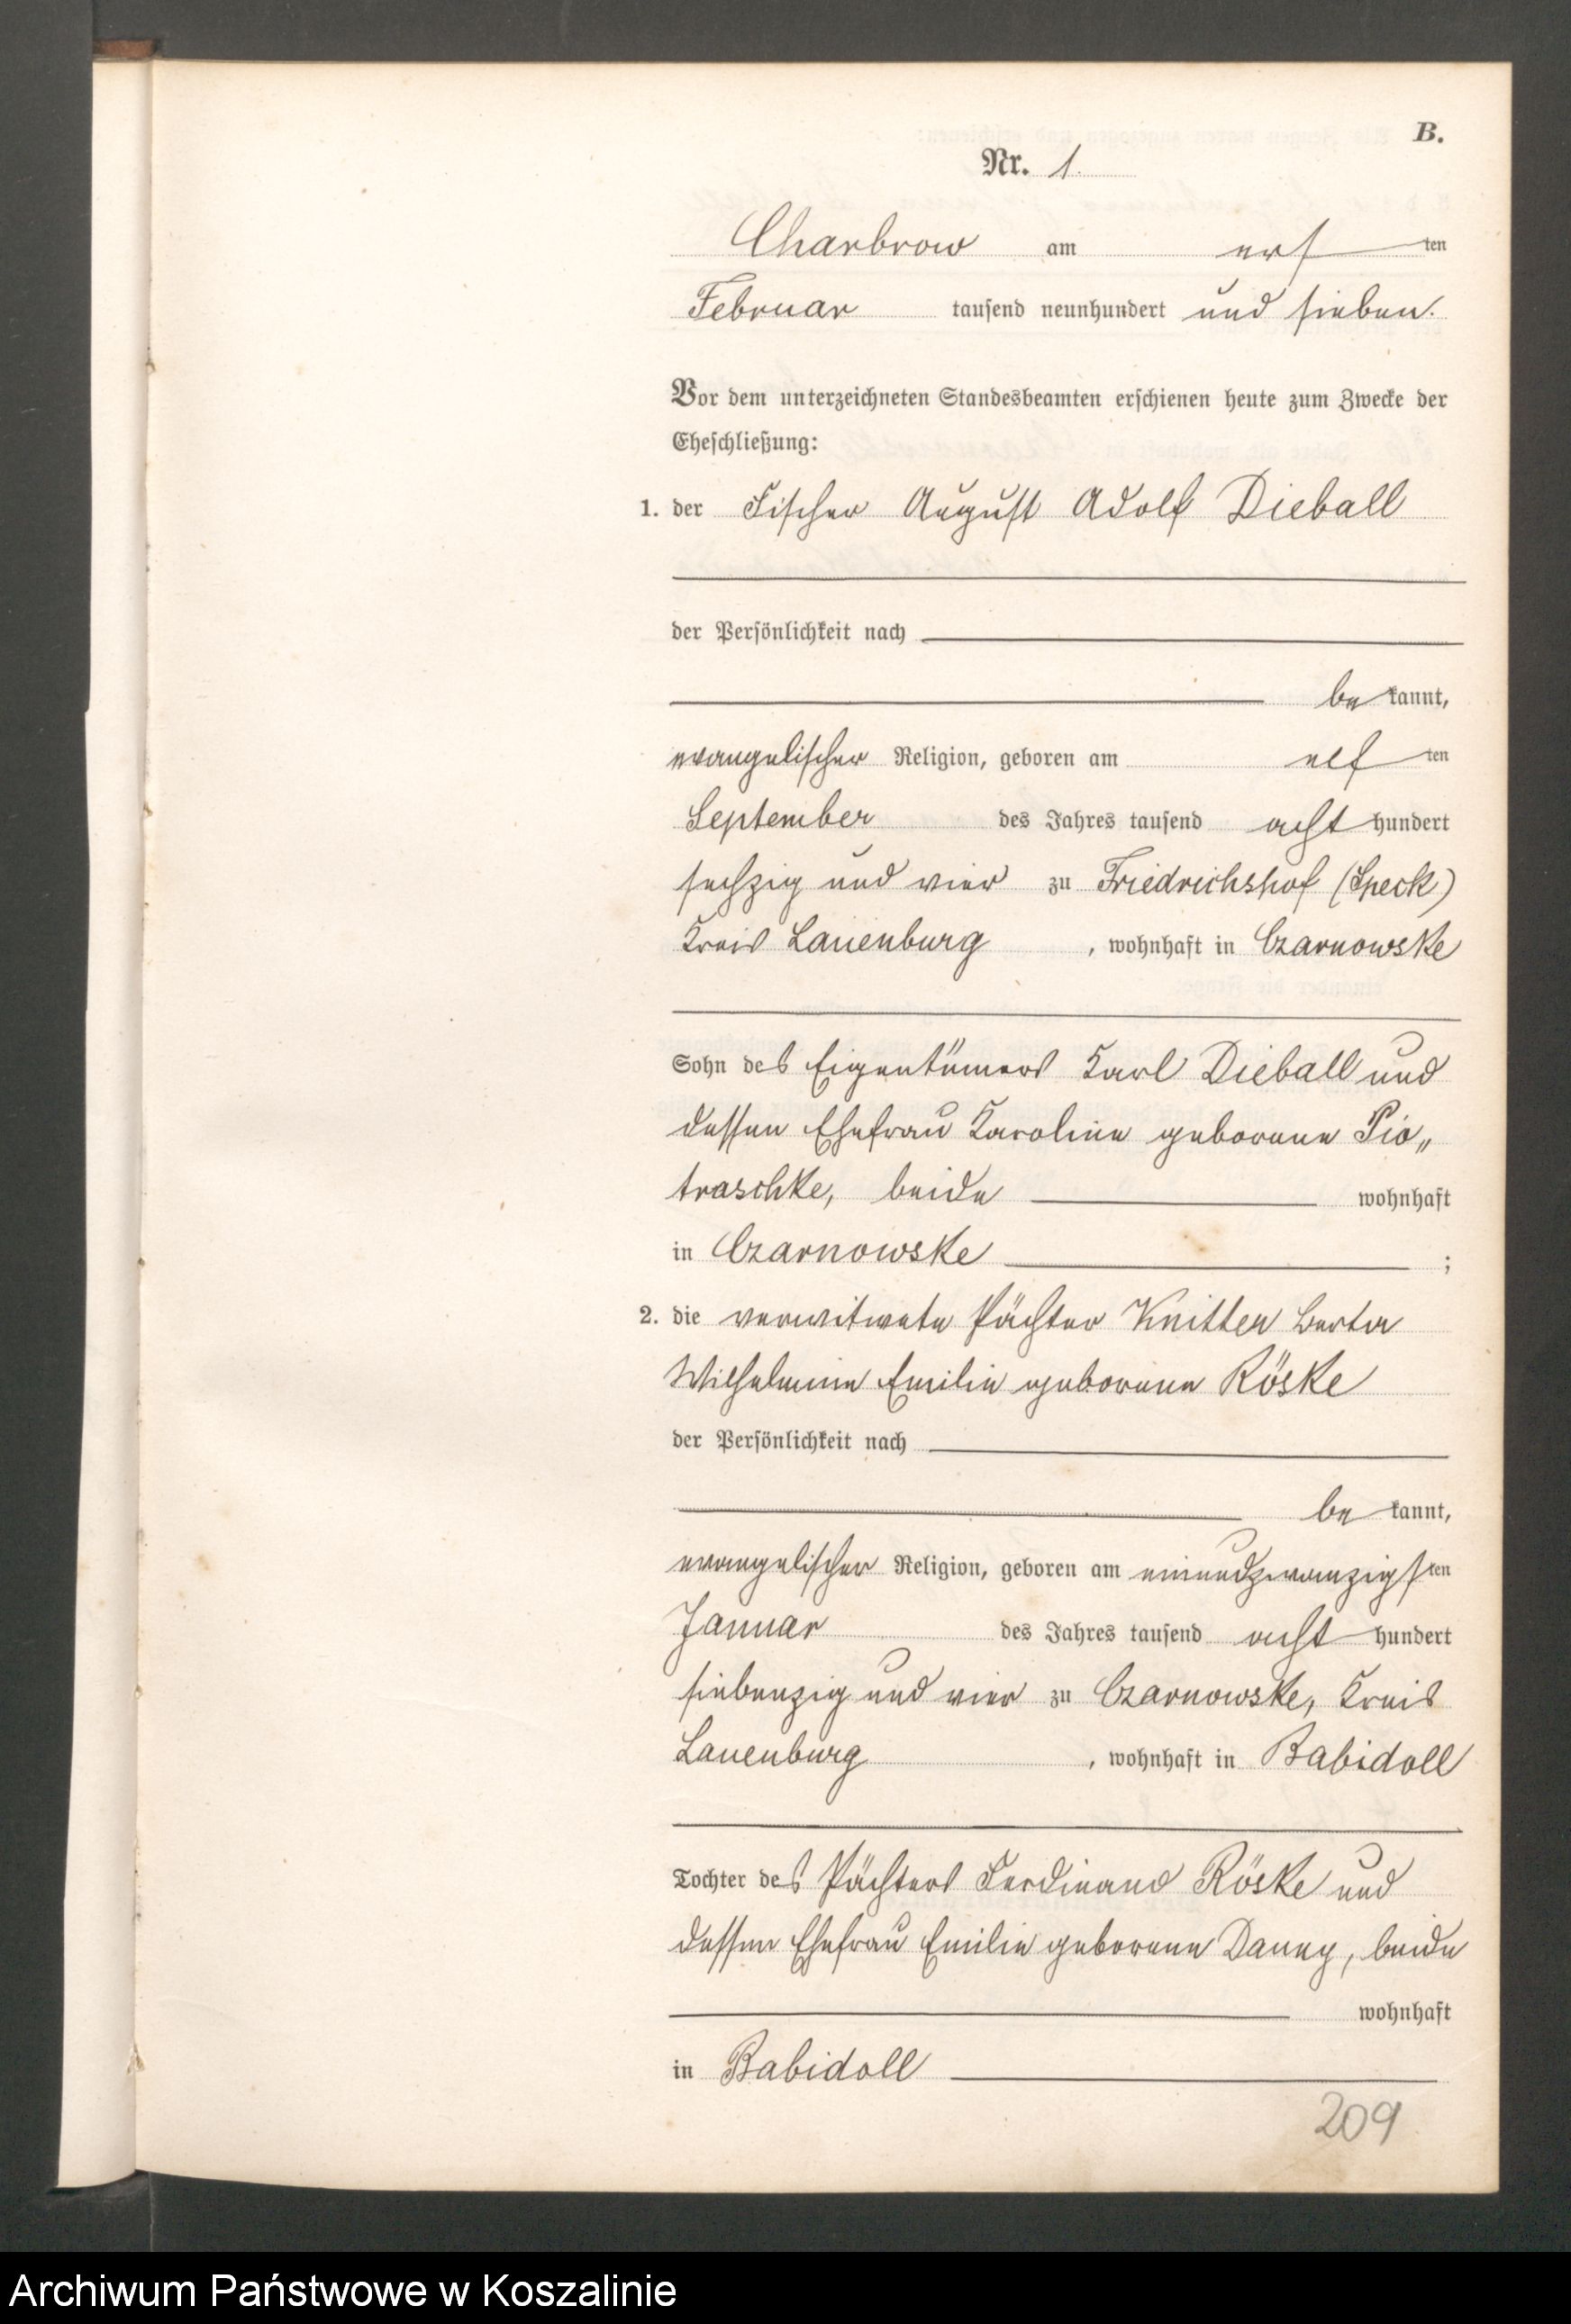 B.
Nr. 1.
Charbrow am erſten
Februar tauſend neunhundert und ſieben.
Vor dem unterzeichneten Standesbeamten erſchienen heute zum Zwecke der
Eheſchließung:
1. der Fiſcher Auguſt Adolf Dieball
der Perſönlichkeit nach
be kannt,
evangeliſcher Religion, geboren am elf ten
September des Jahres tauſend acht hundert
ſechzig und vier zu Friedrichshof (Speck)
Kreis Lauenburg, wohnhaft in Czarnowske
Sohn des Eigentümers Karl Dieball und
deſſen Ehefrau Karoline geborene Pio„
traschke, beide wohnhaft
in Czarnowske ;
2. die verwitwete Pächter Knitter Berta
Wilhelmine Emilie geborene Röske
der Perſönlichkeit nach
be kannt,
evangeliſcher Religion, geboren am einundzwanzigſten
Januar des Jahres tauſend acht hundert
ſiebenzig und vier zu Czarnowske, Kreis
Lauenburg, wohnhaft in Babidoll
Tochter des Pächters Ferdinand Röske und
deſſen Ehefrau Emilie geborene Danny, beide
wohnhaft
in Babidoll
209
Archiwum Państwowe w Koszalinie